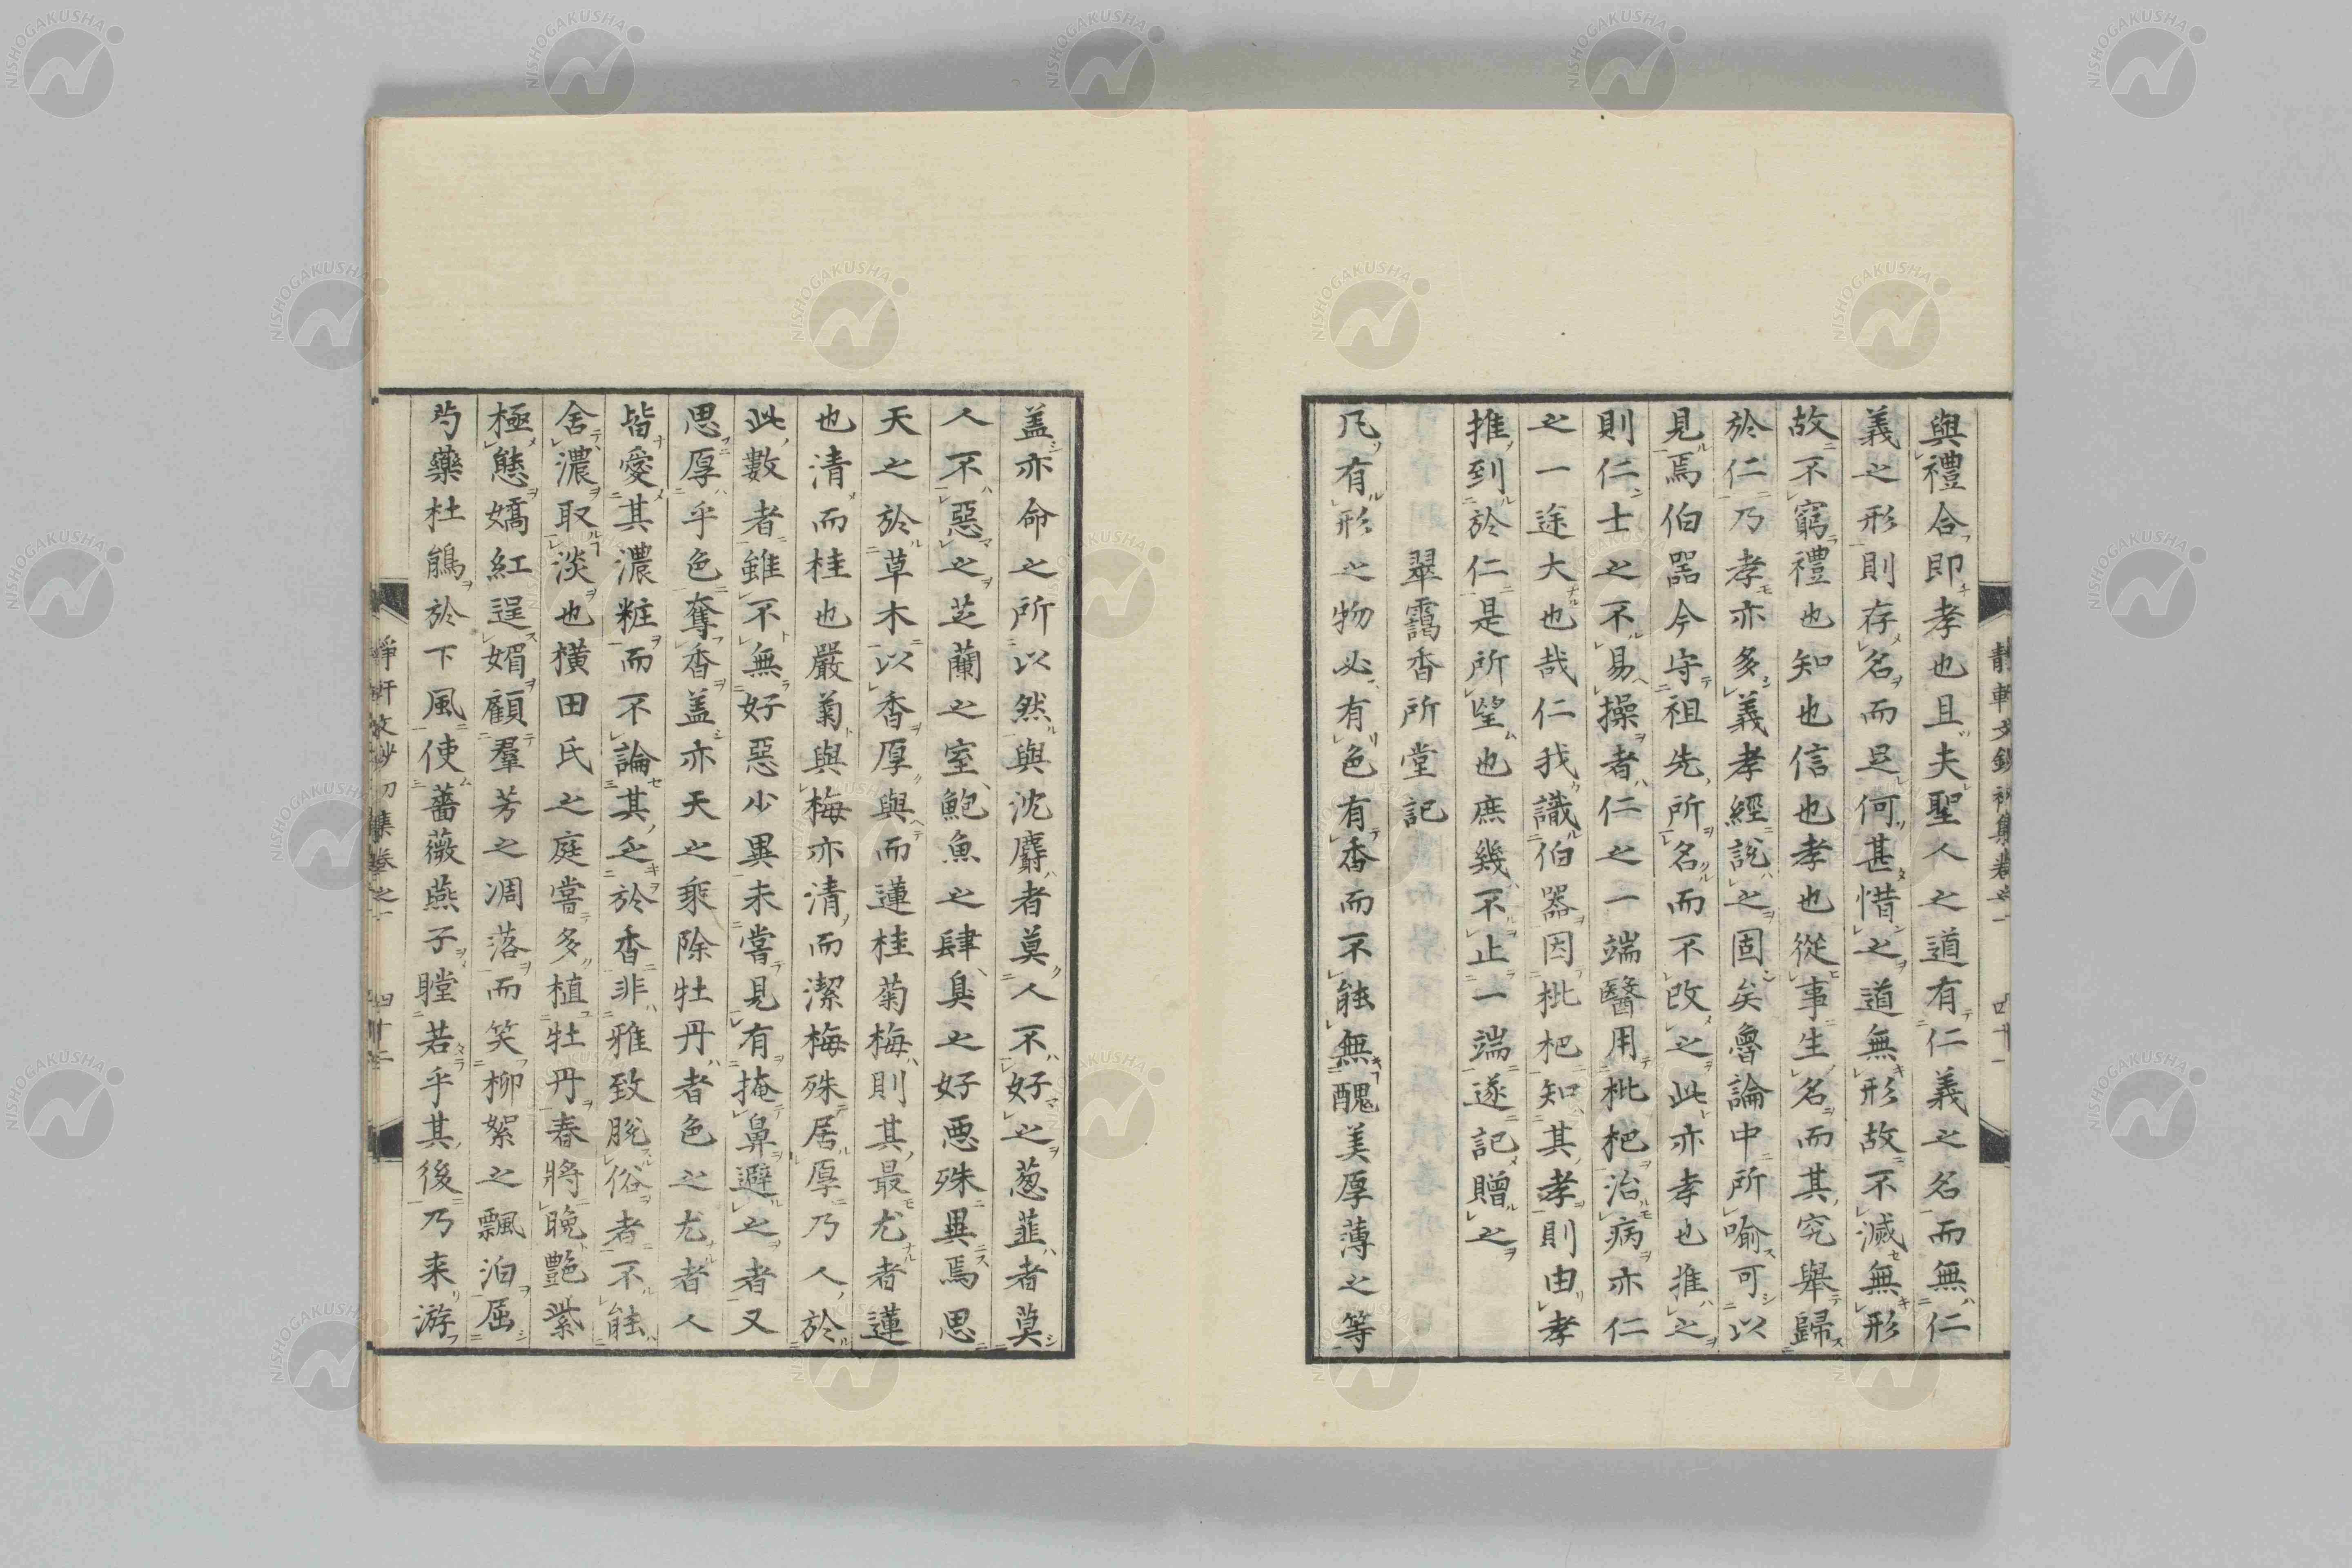 與禮合即孝也且夫聖人之道有仁義之名而無仁
義之形則存名而足何甚惜之道無形故不滅無形
故不窮禮也知也信也孝也從事生名而其究舉歸
於仁乃孝亦多義孝經説之固矣魯論中所喻可以
見焉伯器今守祖先所名而不改之此亦孝也推之
則仁士之不易操者仁之一端醫用枇杷治病亦仁
之一途大也哉仁我識伯器因枇杷知其孝則由孝
推到於仁是所望也庶幾不止一端遂記贈之
翠靄香所堂記
凡有形之物必有色有香而不能無醜美厚薄之等
蓋亦命之所以然與沈麝者莫人不好之葱韮者莫
人不惡之芝蘭之室鮑魚之肆臭之好惡殊異焉思
天之於草木以香厚與而蓮桂菊梅則其最尤者蓮
也清而桂也嚴菊與梅亦清而潔梅殊居厚乃人於
此數者雖不無好惡少異未嘗見有掩鼻避之者又
思厚乎色奪香蓋亦天之乘除牡丹者色之尤者人
皆愛其濃粧而不論其乏於香非雅致脱俗者不能
舍濃取淡也横田氏之庭嘗多植牡丹春將晩艷紫
極態嬌紅逞媚顧羣芳之凋落而笑柳絮之飄泊屈
芍藥杜鵑於下風使薔薇燕子瞠若乎其後乃来游
NISHOGAKUSHA